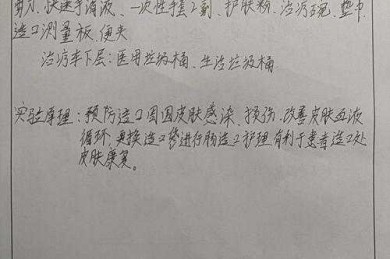 剪刀、快速手消液、一次性手套2副、护肤粉、治疗碗、垫巾
造口测量板、便失
治疗车下层：医用垃圾桶、生活垃圾桶
实验原理：预防造口周围皮肤感染、损伤、改善皮肤血液
循环，更换造口袋进行肠造口护理有利于患者造口处
皮肤康复。